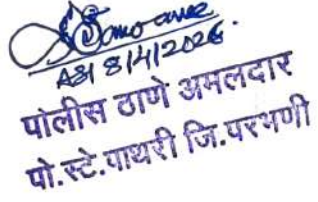 ASI 8/4/2026.
पोलीस ठाणे अमलदार
पो.स्टे.पाथरी जि.परभणी